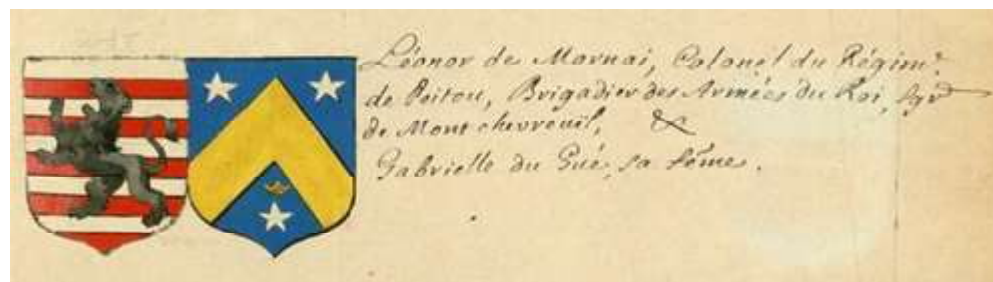 Léonor de Mornai, Colonel du Régimt
de Poitou, Brigadier des Armées du Roi, sgr
de Montchevreüil, &
Gabrielle du Gué, sa fẽme.